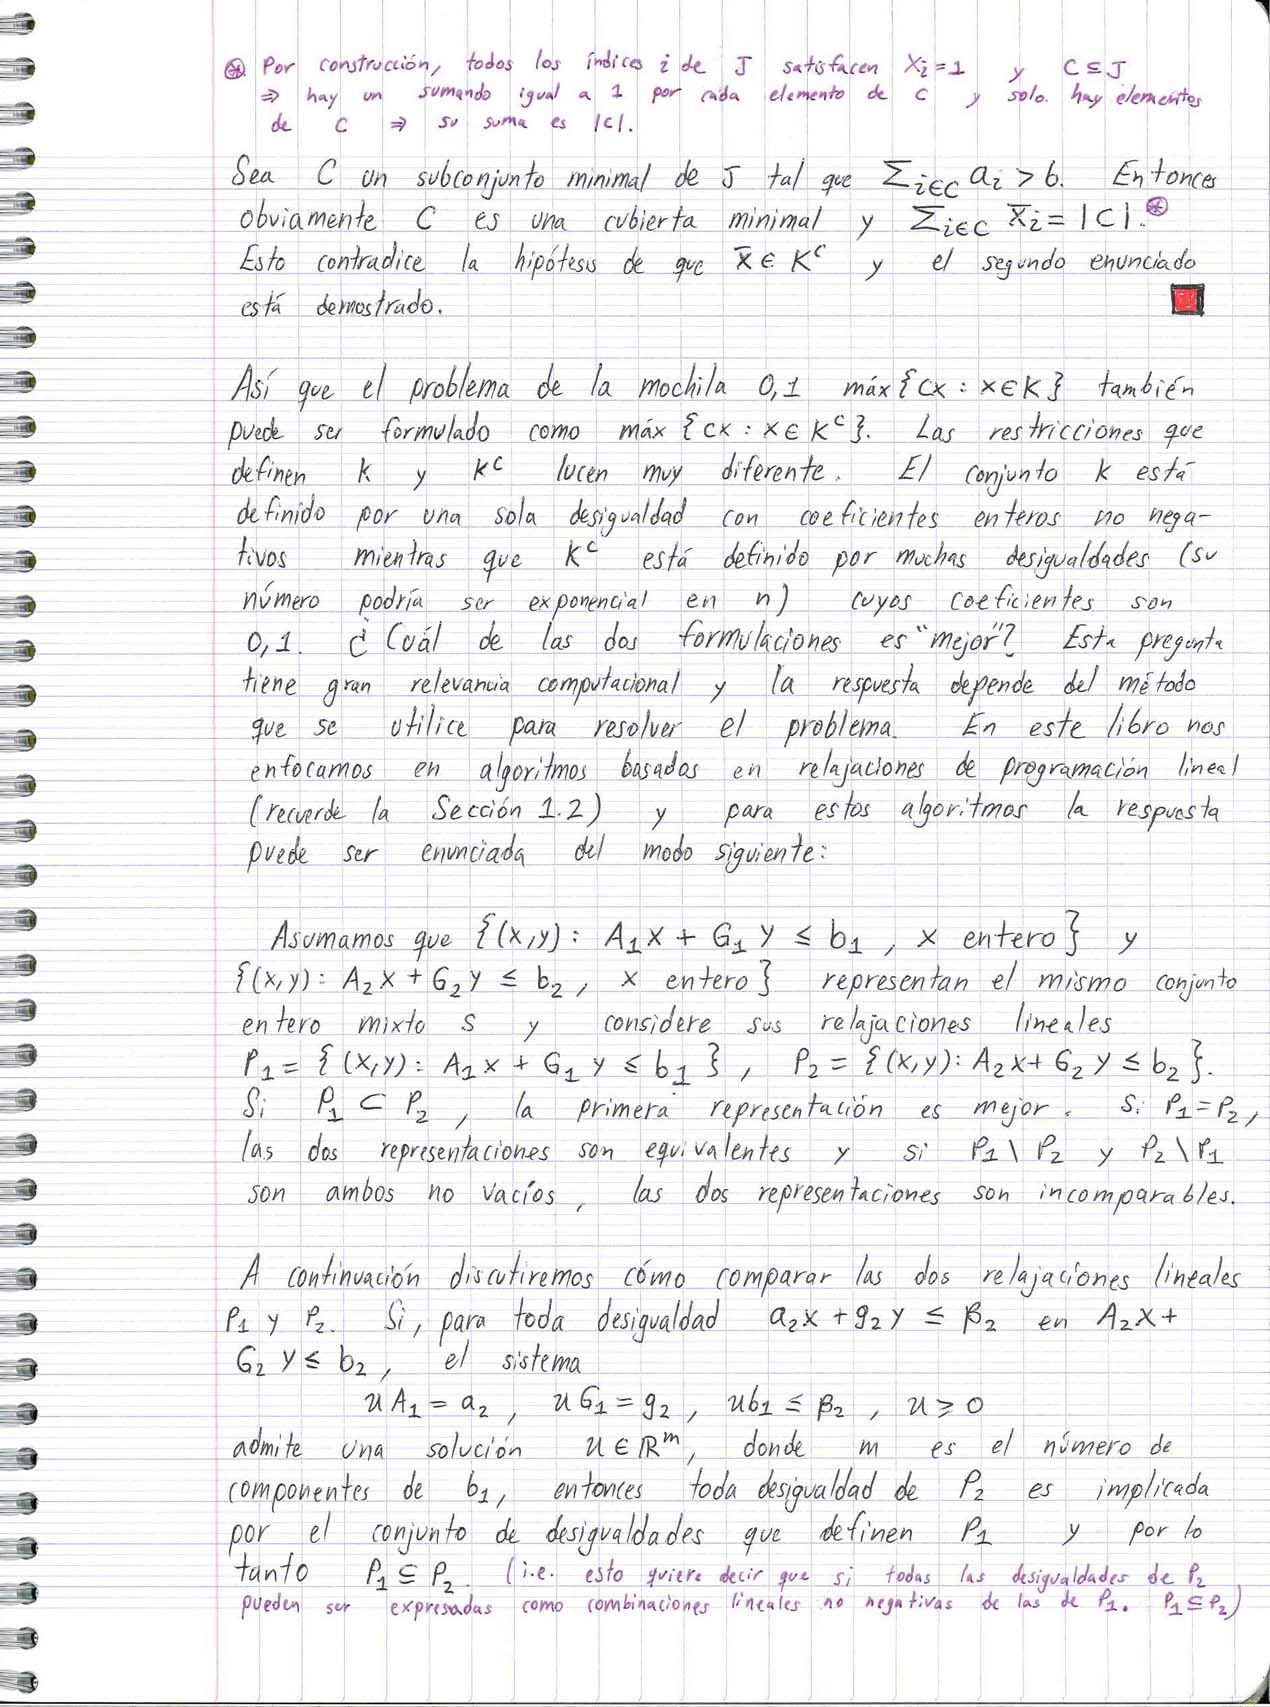 ⊛ Por construcción, todos los índices i de J satisfacen X̄i=1 y C⊆J
⇒ hay un sumando igual a 1 por cada elemento de C y solo hay elementos
de C ⇒ su suma es |C|.
Sea C un subconjunto minimal de J tal que Σi∈C ai > b. Entonces
obviamente C es una cubierta minimal y Σi∈C x̄i = |C|.⊛
Esto contradice la hipótesis de que x̄ ∈ K^C y el segundo enunciado
está demostrado.
Así que el problema de la mochila 0,1 máx{cx : x∈K} también
puede ser formulado como máx {cx : x∈ K^C}. Las restricciones que
definen K y K^C lucen muy diferente. El conjunto K está
definido por una sola desigualdad con coeficientes enteros no nega-
tivos mientras que K^C está definido por muchas desigualdades (su
número podría ser exponencial en n) cuyos coeficientes son
0,1. ¿Cuál de las dos formulaciones es "mejor"? Esta pregunta
tiene gran relevancia computacional y la respuesta depende del método
que se utilice para resolver el problema. En este libro nos
enfocamos en algoritmos basados en relajaciones de programación lineal
(recuerde la Sección 1.2) y para estos algoritmos la respuesta
puede ser enunciada del modo siguiente:
Asumamos que {(x,y): A1x + G1y ≤ b1, x entero} y
{(x,y): A2x + G2y ≤ b2, x entero} representan el mismo conjunto
entero mixto S y considere sus relajaciones lineales
P1 = {(x,y): A1x + G1y ≤ b1}, P2 = {(x,y): A2x + G2y ≤ b2}.
Si P1 ⊂ P2, la primera representación es mejor. Si P1=P2,
las dos representaciones son equivalentes y si P1\P2 y P2\P1
son ambos no vacíos, las dos representaciones son incomparables.
A continuación discutiremos cómo comparar las dos relajaciones lineales
P1 y P2. Si, para toda desigualdad a2x + g2y ≤ β2 en A2x +
G2y ≤ b2, el sistema
uA1 = a2, uG1 = g2, ub1 ≤ β2, u ≥ 0
admite una solución u ∈ ℝ^m, donde m es el número de
componentes de b1, entonces toda desigualdad de P2 es implicada
por el conjunto de desigualdades que definen P1 y por lo
tanto P1 ⊆ P2. (i.e. esto quiere decir que si todas las desigualdades de P2
pueden ser expresadas como combinaciones lineales no negativas de las de P1. P1⊆P2)